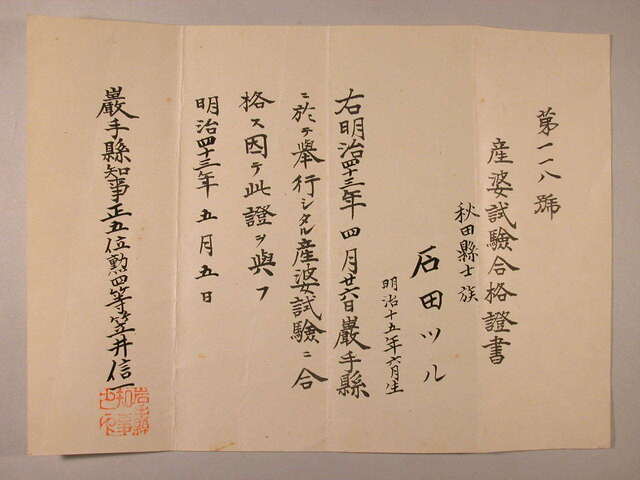 第一一八號
産婆試驗合格證書
秋田縣士族
石田ツル
明治十五年六月生
右明治四十三年四月廿六日巖手縣
ニ於テ舉行シタル産婆試驗ニ合
格ス因テ此證ヲ與フ
明治四十三年五月五日
巖手縣知事正五位勲四等笠井信一